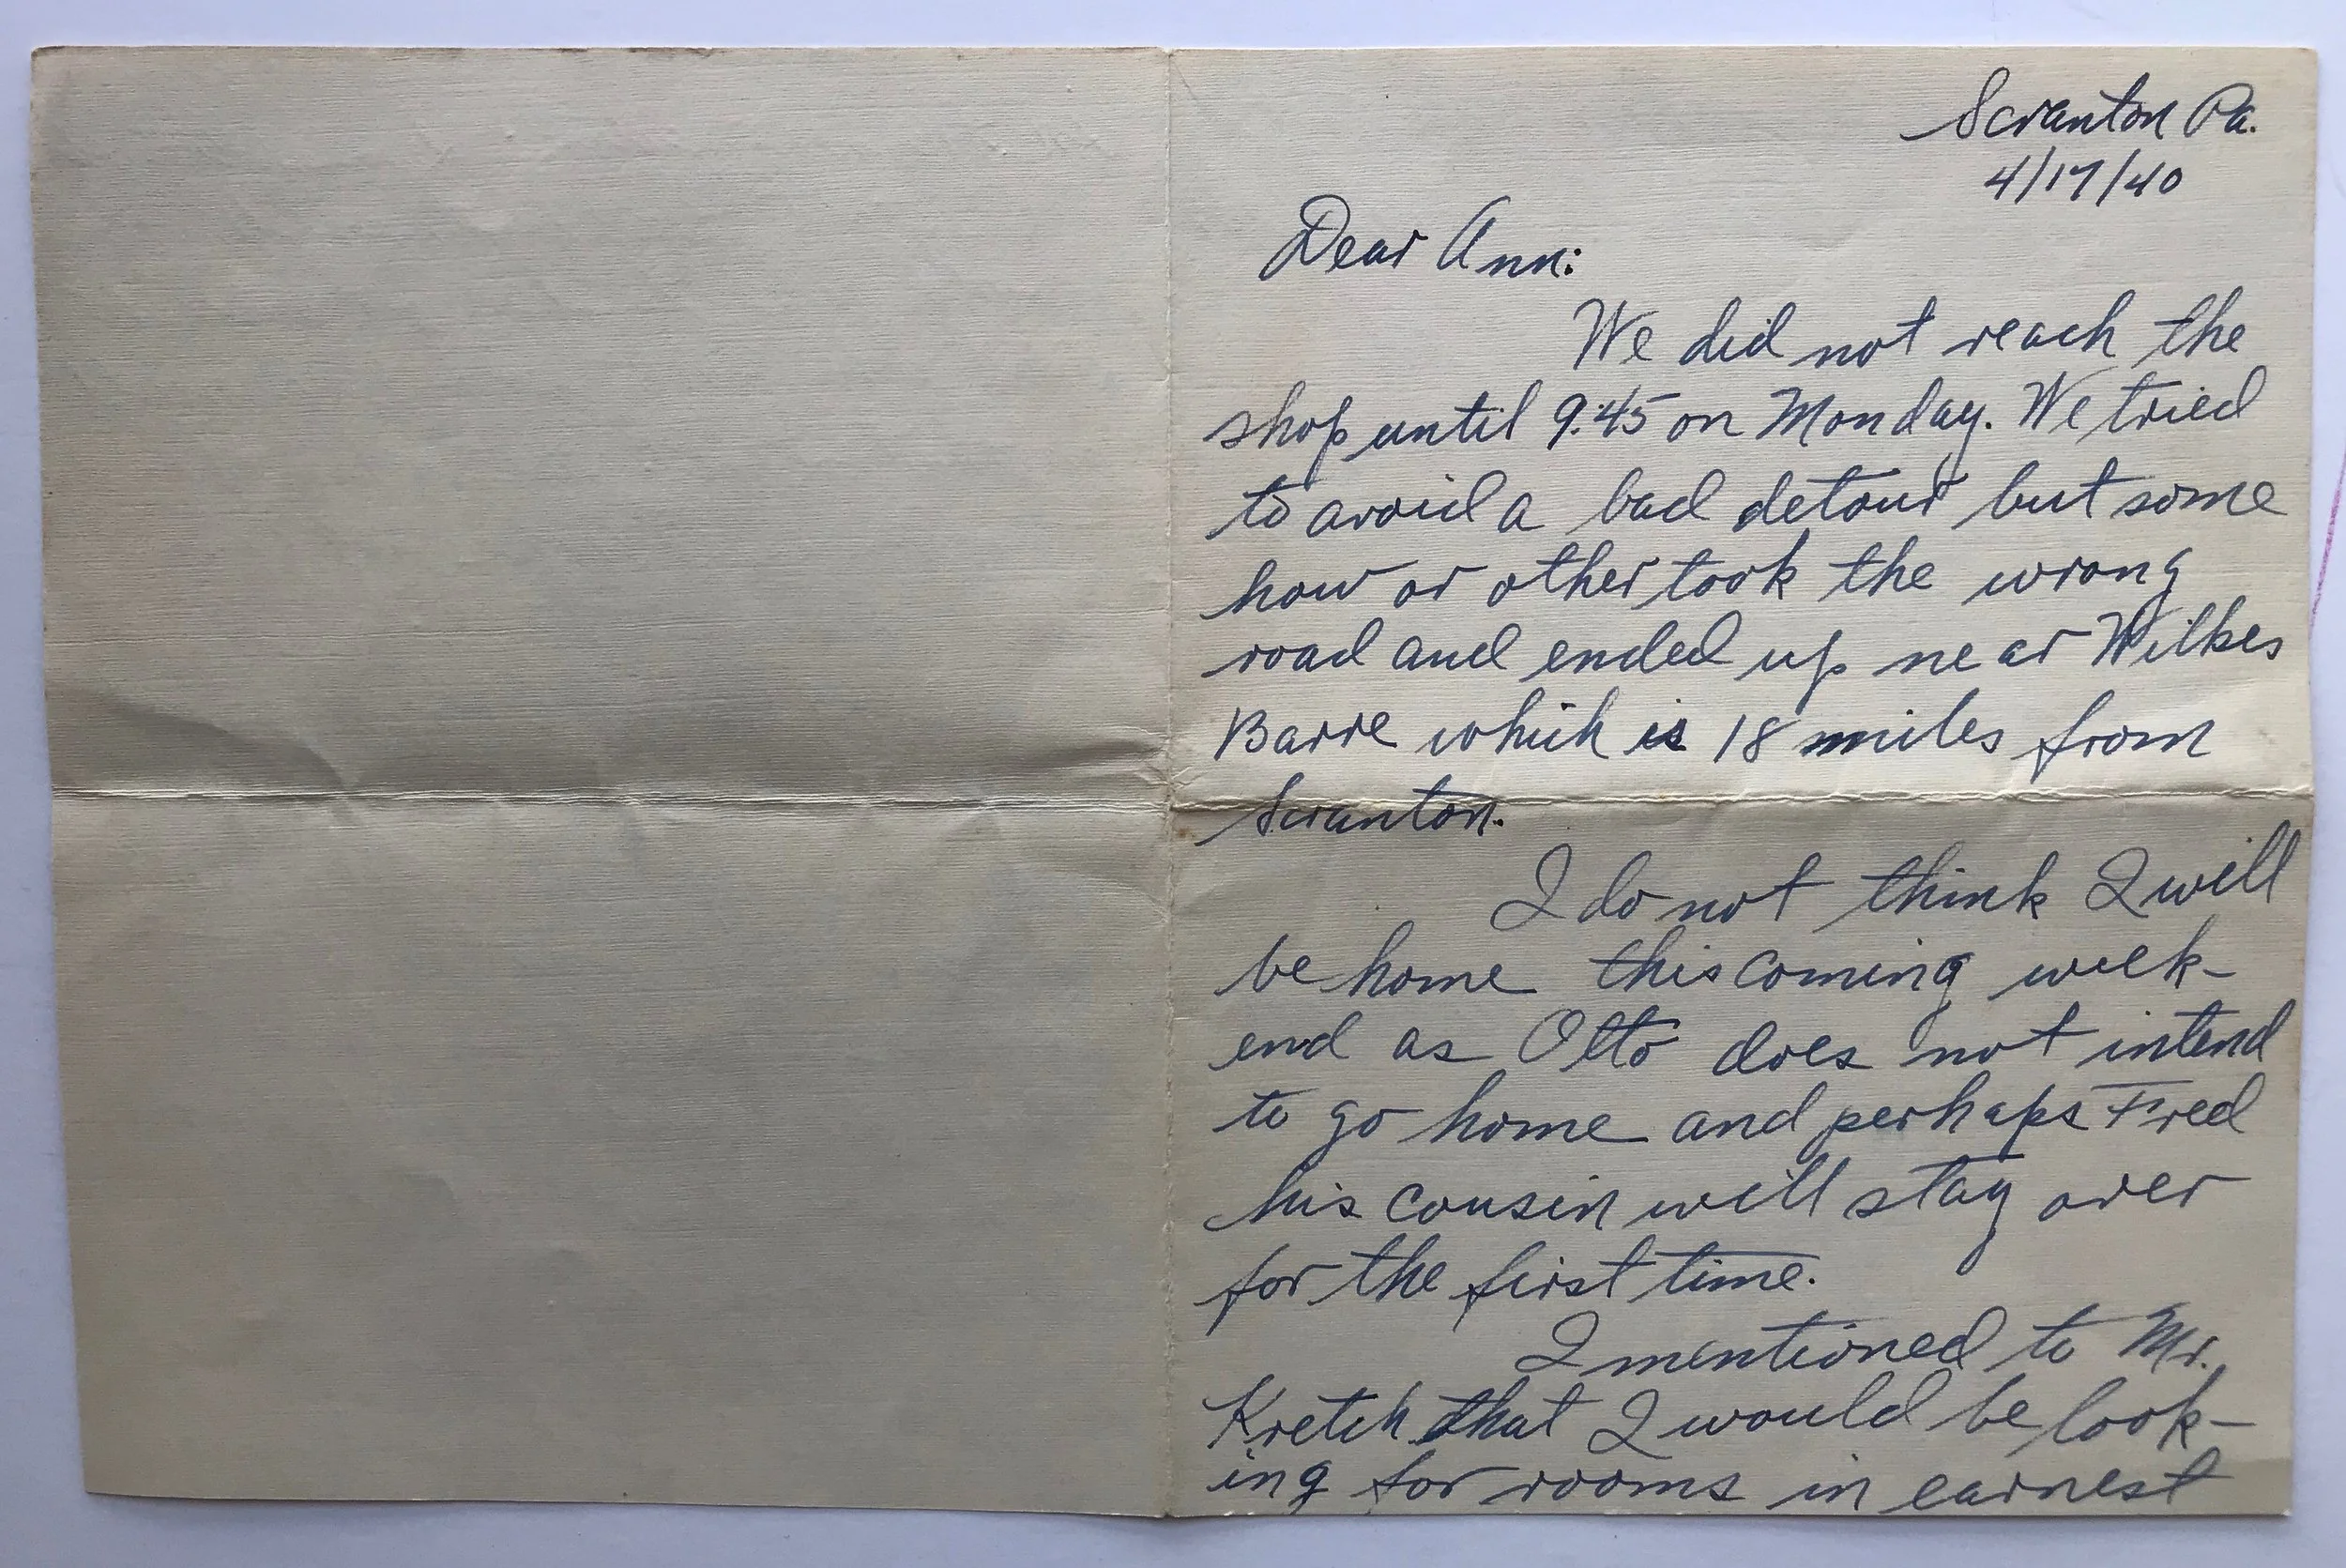 Scranton Pa.
4/17/40
Dear Ann:
We did not reach the
shop until 9:45 on Monday. We tried
to avoid a bad detour but some
how or other took the wrong
road and ended up near Wilkes
Barre which is 18 miles from
Scranton.
I do not think I will
be home this coming week-
end as Otto does not intend
to go home and perhaps Fred
his cousin will stay over
for the first time.
I mentioned to Mr.
Kretch that I would be look-
ing for rooms in earnest